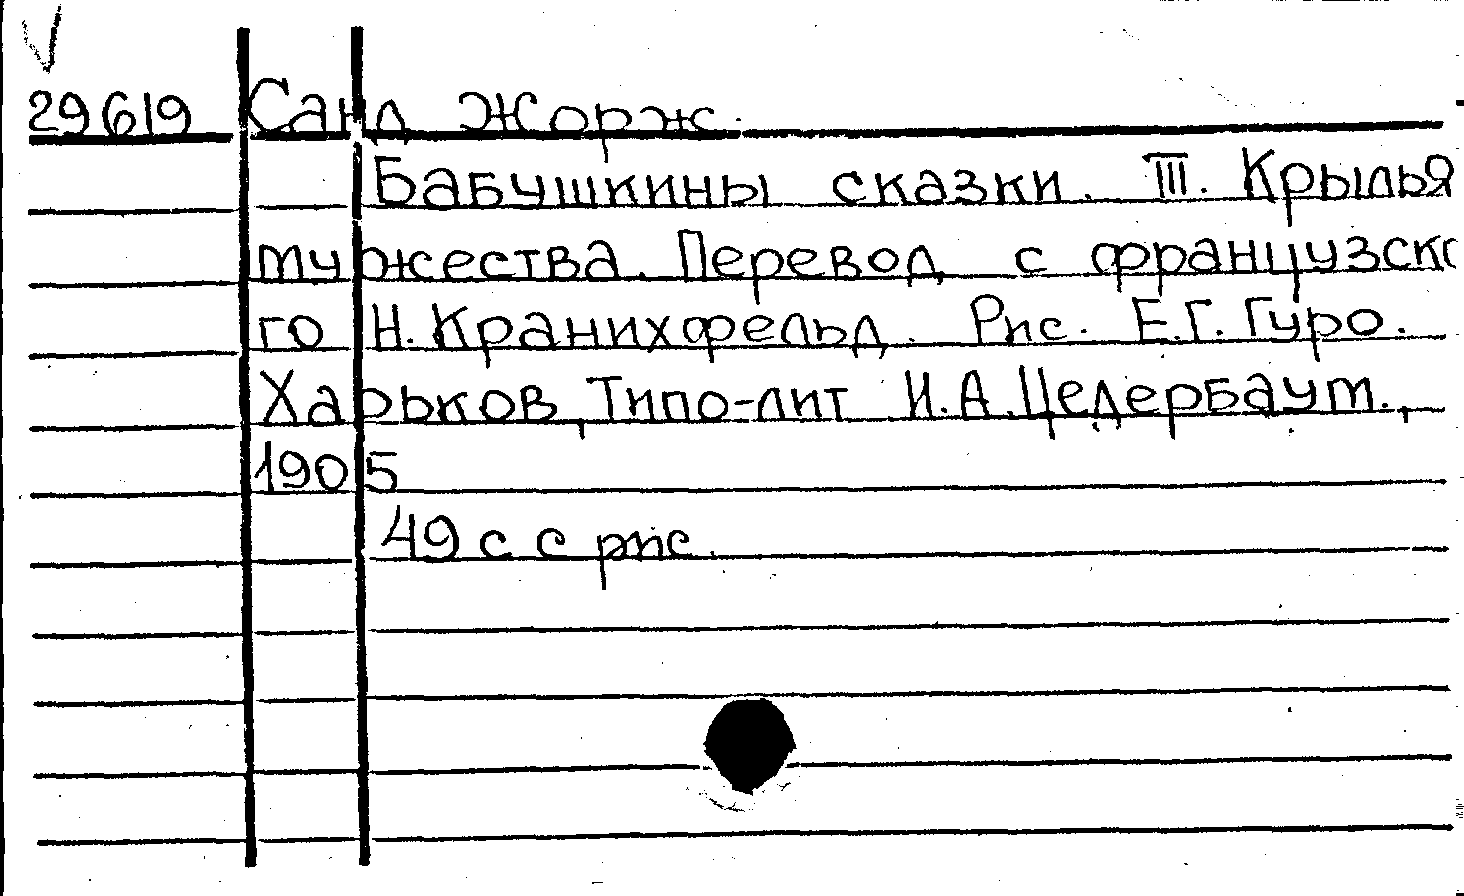 29619 Санд Жорж.
Бабушкины сказки. III. Крылья
мужества. Перевод с французско
го Н. Кранихфельд. Рис. Е.Г. Гуро.
Харьков, Типо-лит И.А. Цедербаум.,
1905
49 с с рис.